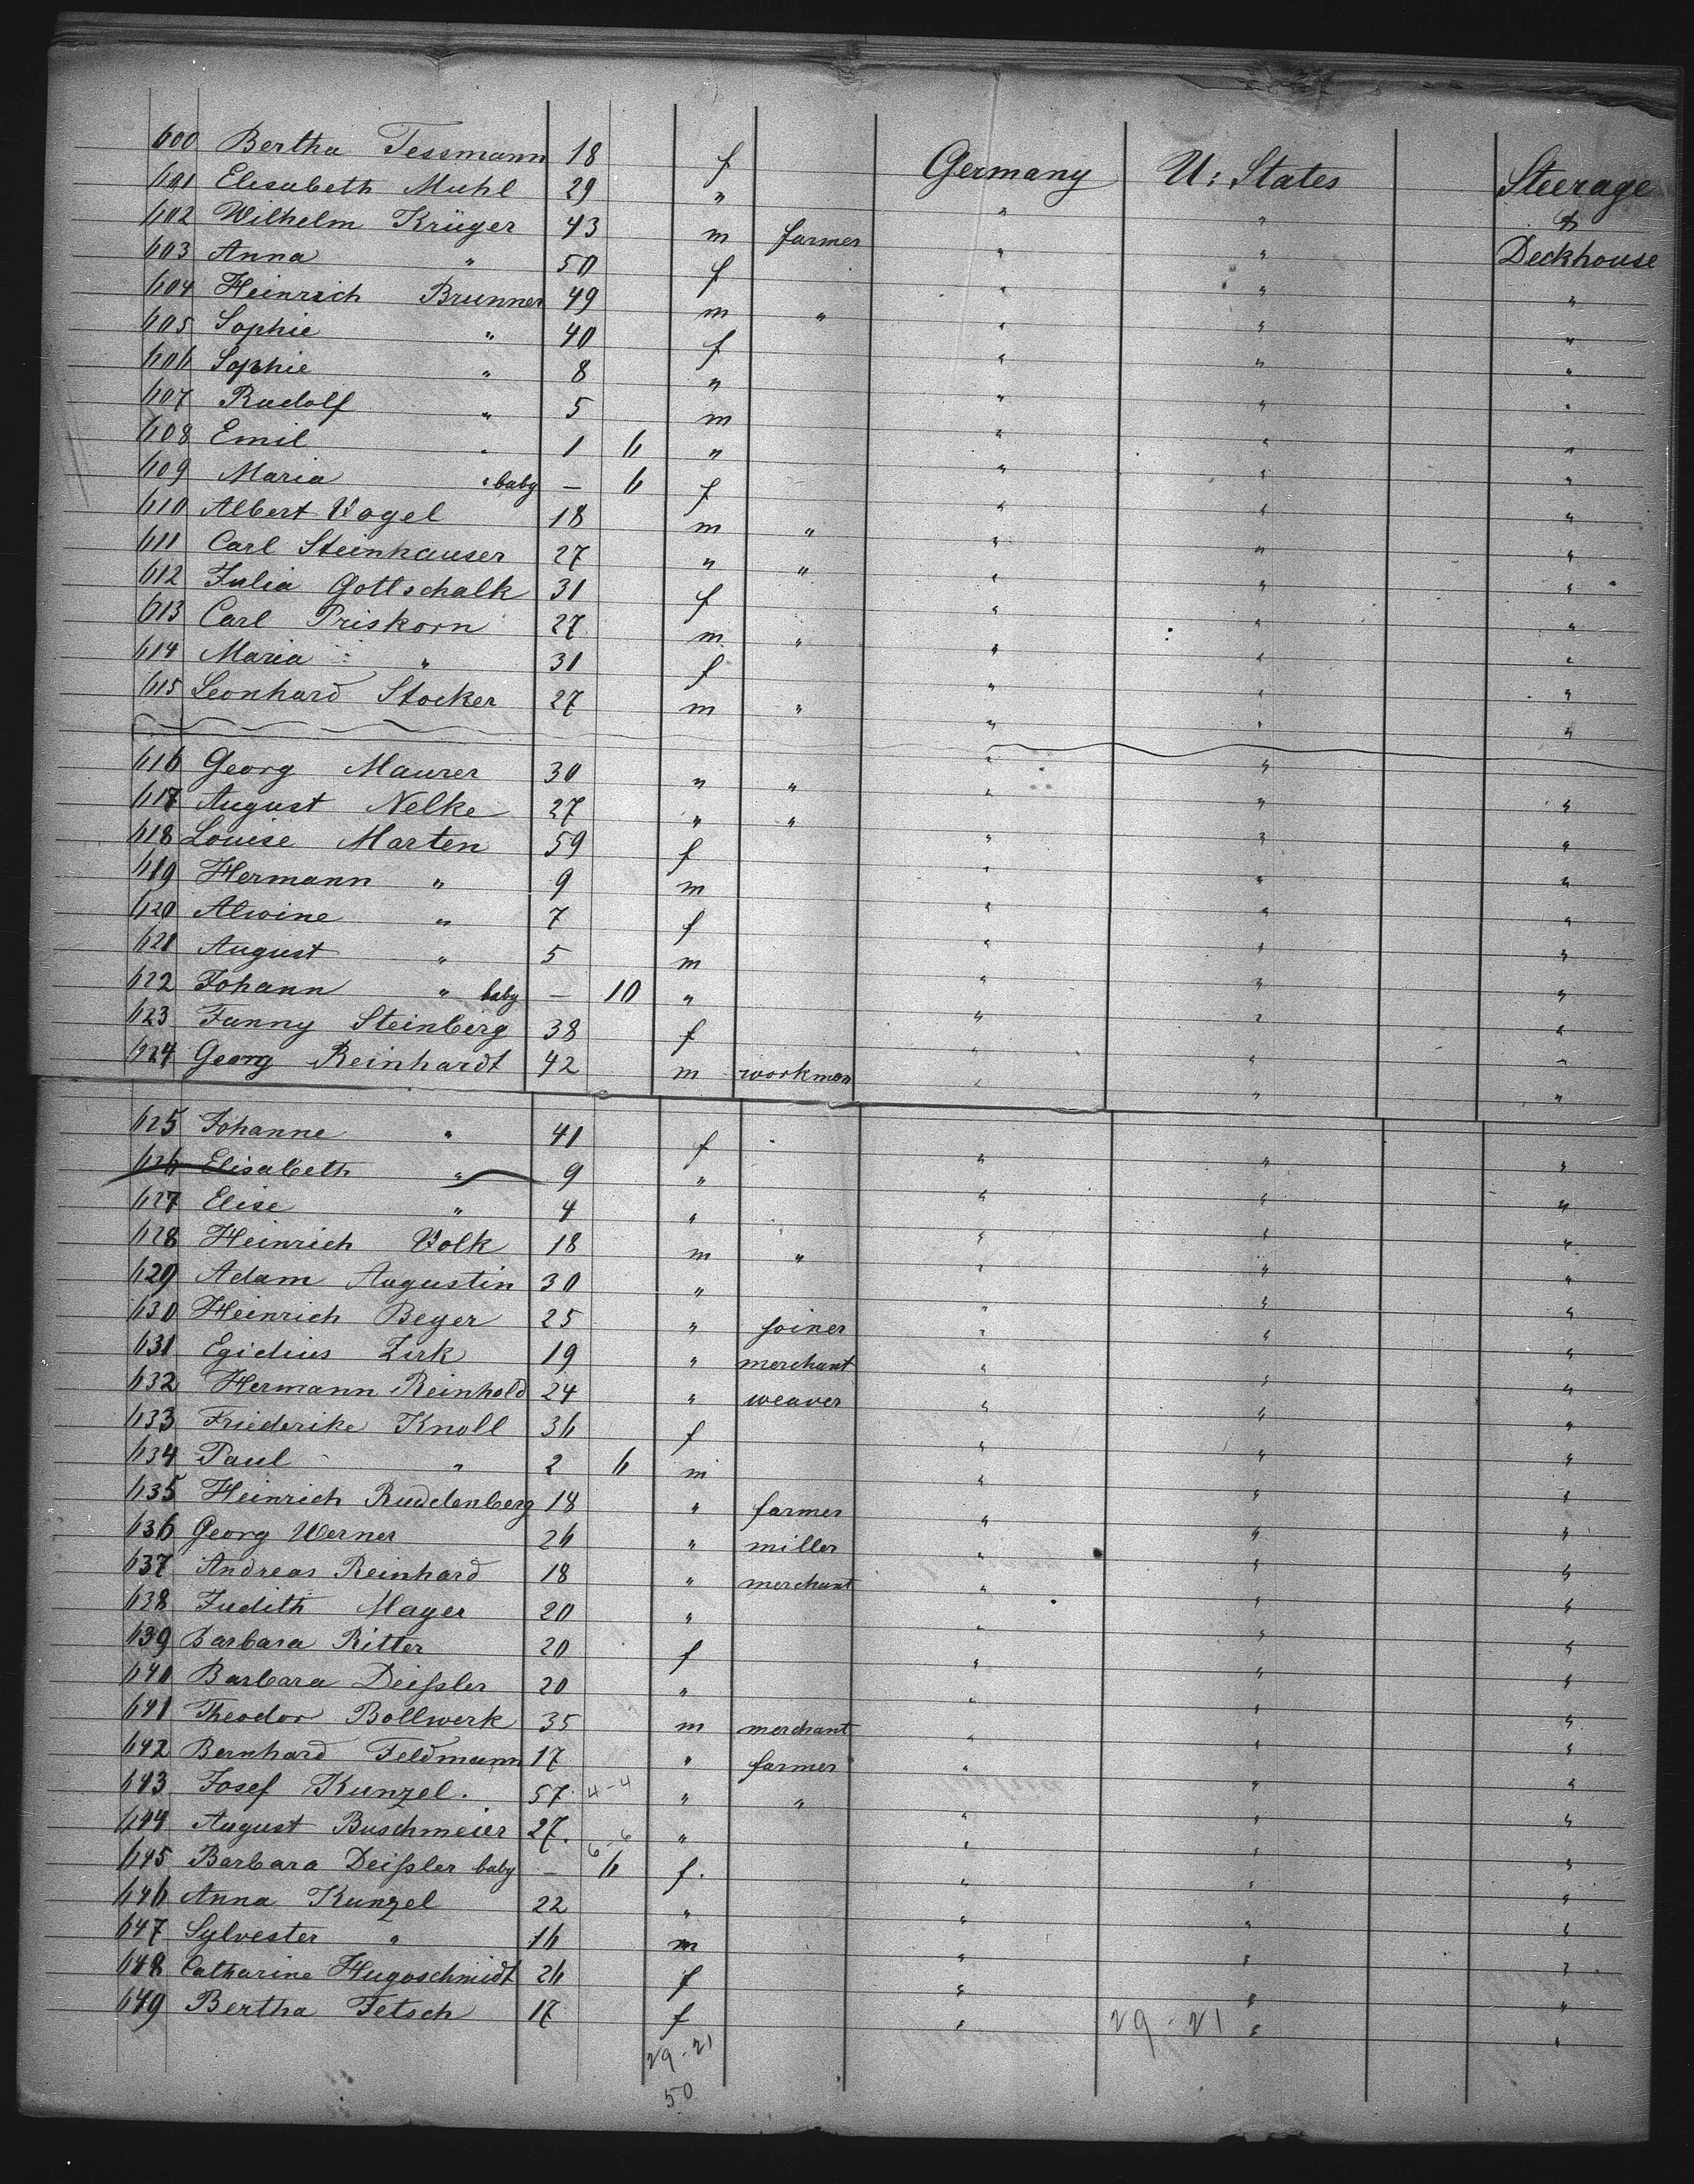 600 Bertha Tessmann 18 f Germany U: States Steerage
601 Elisabeth Muhl 29 " " " &
602 Wilhelm Krüger 43 m farmer " " Deckhouse
603 Anna " 50 f " " "
604 Heinrich Brunner 49 m " " " "
605 Sophie " 40 f " " "
606 Sophie " 8 " " " "
607 Rudolf " 5 m " " "
608 Emil " 1 6 " " " "
609 Maria " baby — 6 f " " "
610 Albert Vogel 18 m " " " "
611 Carl Steinhauser 27 " " " " "
612 Julia Gottschalk 31 f " " "
613 Carl Priskorn 27 m " " " "
614 Maria " 31 f " " "
615 Leonhard Stocker 27 m " " " "
616 Georg Maurer 30 " " " " "
617 August Nelke 27 " " " " "
618 Louise Marten 59 f " " "
619 Hermann " 9 m " " "
620 Alwine " 7 f " " "
621 August " 5 m " " "
622 Johann " baby — 10 " " " "
623 Fanny Steinberg 38 f " " "
624 Georg Reinhardt 42 m workman " " "
625 Johanne " 41 f " " "
626 Elisabeth " 9 " " " "
627 Elise " 4 " " " "
628 Heinrich Volk 18 m " " " "
629 Adam Augustin 30 " " " "
630 Heinrich Beyer 25 " joiner " " "
631 Egidius Zirk 19 " merchant " " "
632 Hermann Reinhold 24 " weaver " " "
633 Friederike Knoll 36 f " " "
634 Paul " 2 6 m " " "
635 Heinrich Rudelenberg 18 " farmer " " "
636 Georg Werner 26 " miller " " "
637 Andreas Reinhard 18 " merchant " " "
638 Judith Mayer 20 " " " "
639 Barbara Ritter 20 f " " "
640 Barbara Deißler 20 " " " "
641 Theodor Bollwerk 35 m merchant " " "
642 Bernhard Feldmann 17 " farmer " " "
643 Josef Kunzel. 57 4-4 " " " " "
644 August Buschmeier 27. 6-6 " " " "
645 Barbara Deißler baby — 6 f. " " "
646 Anna Kunzel 22 " " " "
647 Sylvester " 16 m " " "
648 Catharine Hugoschmidt 26 f " " "
649 Bertha Fetsch 17 f " 29-21 " "
29-21
50